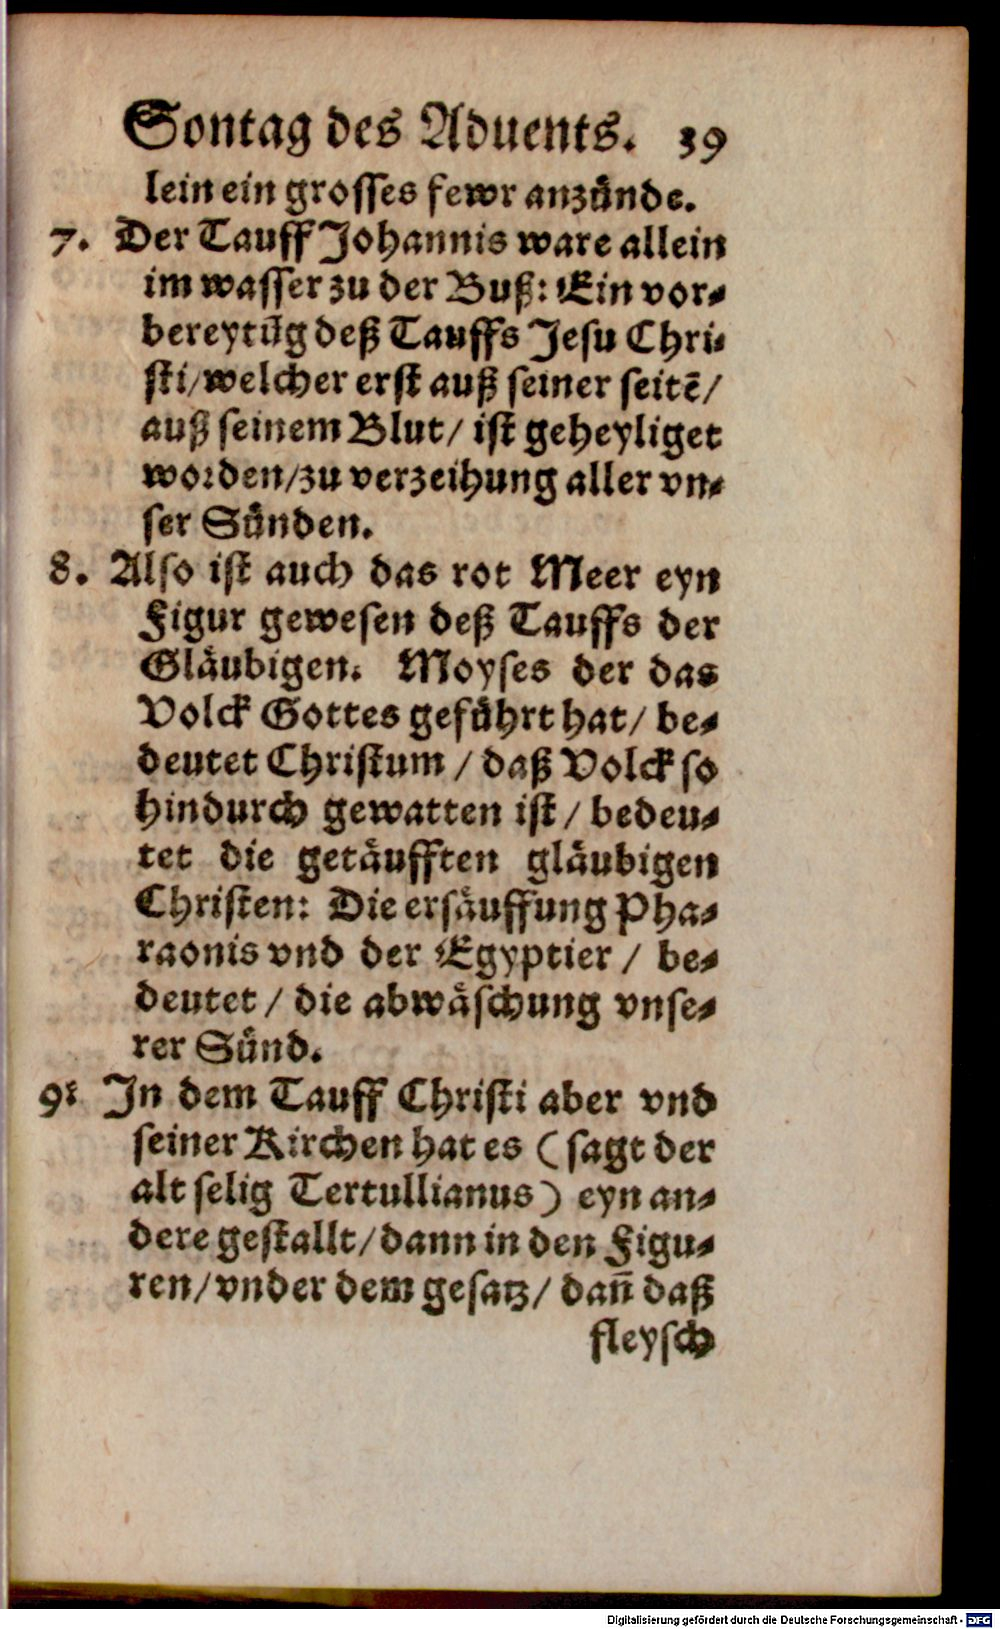 Sontag des Aduents. 39
lein ein grosses fewr anzünde.
7. Der Tauff Johannis ware allein
im wasser zu der Buß: Ein vor-
bereytũg deß Tauffs Jesu Chri-
sti/welcher erst auß seiner seitē/
auß seinem Blut/ ist geheyliget
worden/zu verzeihung aller vn-
ser Sünden.
8. Also ist auch das rot Meer eyn
Figur gewesen deß Tauffs der
Gläubigen. Moyses der das
Volck Gottes geführt hat/ be-
deutet Christum / daß Volck so
hindurch gewatten ist / bedeu-
tet die getäufften gläubigen
Christen: Die ersäuffung Pha-
raonis vnd der Egyptier / be-
deutet / die abwäschung vnse-
rer Sünd.
9. In dem Tauff Christi aber vnd
seiner Kirchen hat es (sagt der
alt selig Tertullianus) eyn an-
dere gestallt/dann in den Figu-
ren/vnder dem gesatz/ dañ daß
fleysch
Digitalisierung gefördert durch die Deutsche Forschungsgemeinschaft - DFG